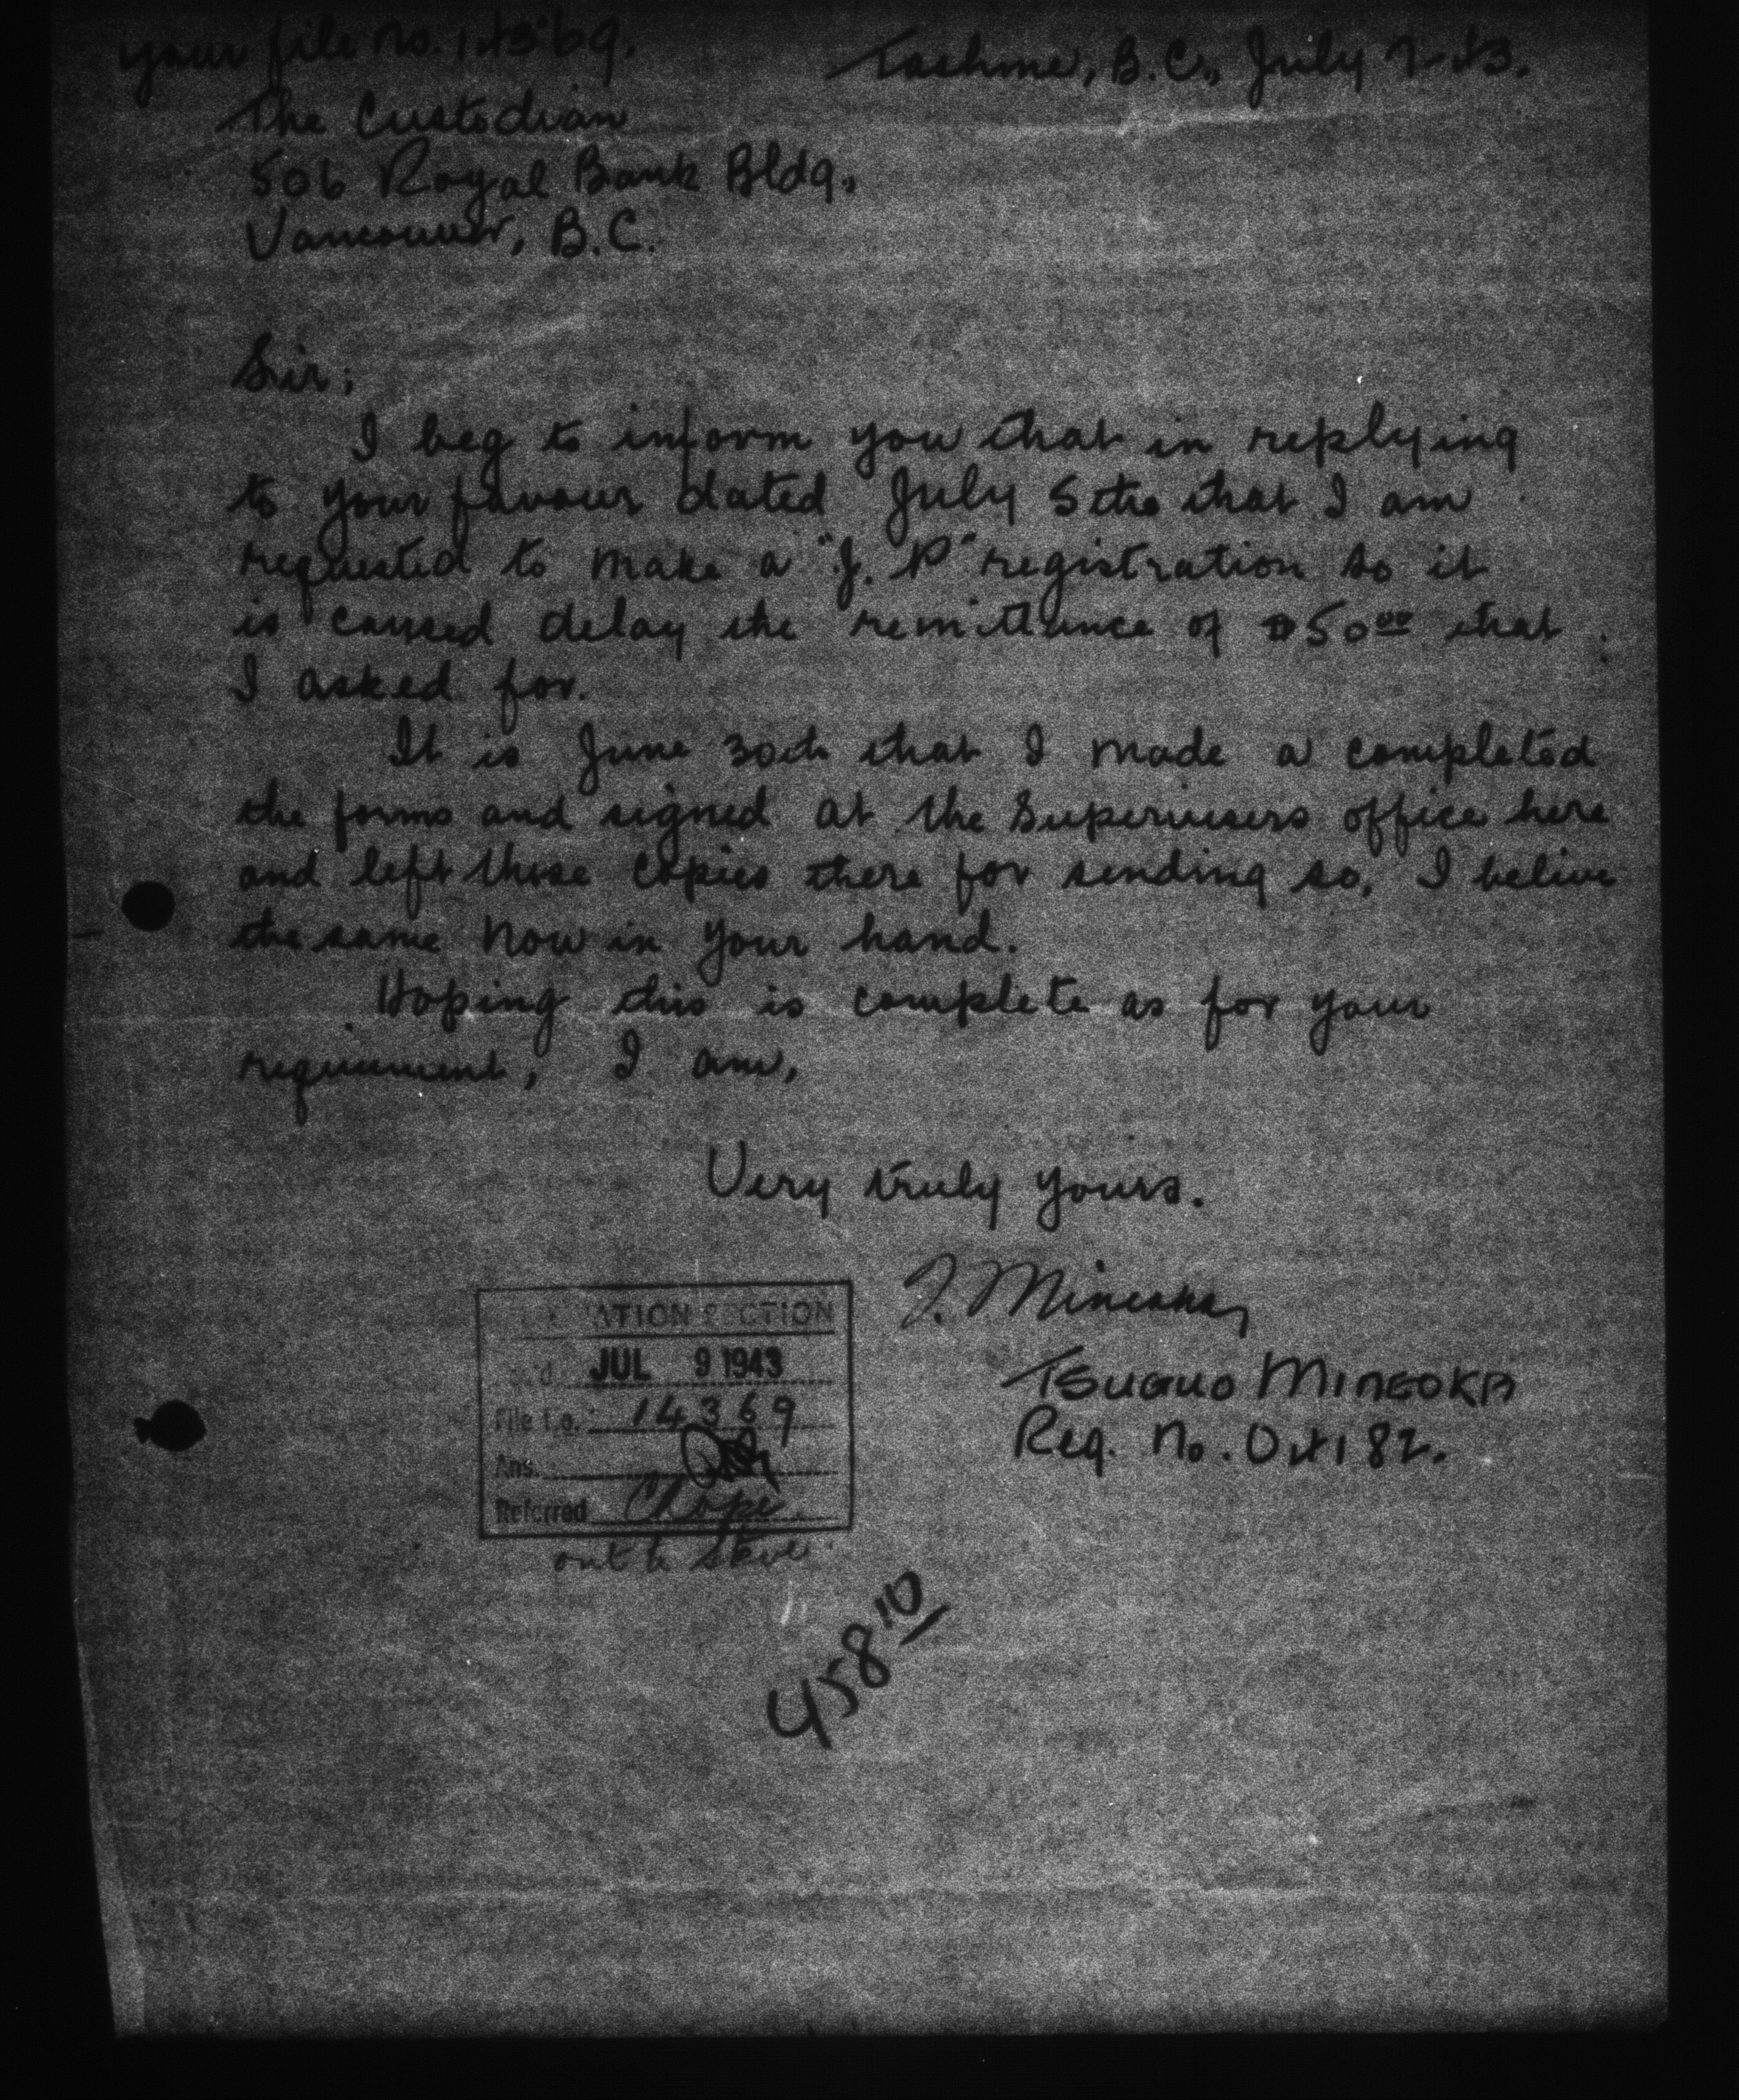 your file no. 14369.
Tashme, B.C., July 7-43.
The Custodian
506 Royal Bank Bldg.,
Vancouver, B.C.
Sir;
I beg to inform you that in replying
to your favour dated July 5th that I am
requested to make a "J. P" registration so it
is caused delay the remittance of $50.00 that
I asked for.
It is June 30th that I made a completed
the forms and signed at the Supervisers office here
and left these copies there for sending so, I belive
the same now in your hand.
Hoping this is complete as for your
requirement, I am,
Very truly yours.
T. Mineoka
Tsuguo Mineoka
Reg. No. 04182.
ATION SECTION
JUL 9 1943
File No. 14369
Ans.
Referred
458 10